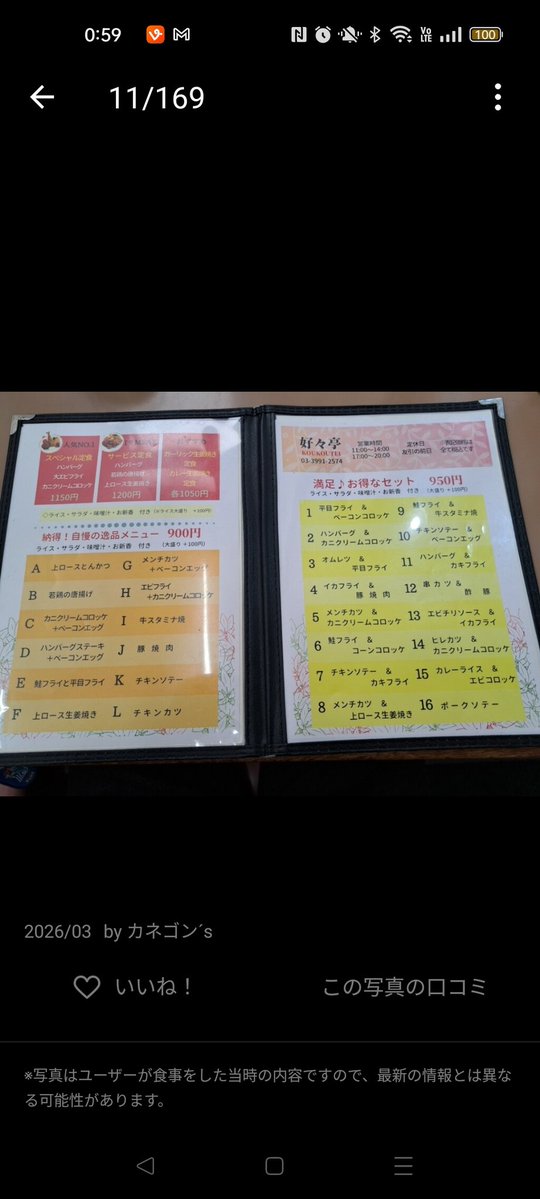 0:59
100
11/169
人気NO.1
スペシャル定食
ハンバーグ
大エビフライ
カニクリームコロッケ
1150円
サービス定食
ハンバーグ
若鶏の唐揚げ
上ロース生姜焼き
1200円
ガーリック生姜焼き
定食
カレー生姜焼き
定食
各1050円
◇ライス・サラダ・味噌汁・お新香 付き (※ライス大盛り +100円)
納得！自慢の逸品メニュー 900円
ライス・サラダ・味噌汁・お新香 付き (大盛り +100円)
A 上ロースとんかつ
B 若鶏の唐揚げ
C カニクリームコロッケ
+ベーコンエッグ
D ハンバーグステーキ
+ベーコンエッグ
E 鮭フライと平目フライ
F 上ロース生姜焼き
G メンチカツ
+ベーコンエッグ
H エビフライ
+カニクリームコロッケ
I 牛スタミナ焼
J 豚焼肉
K チキンソテー
L チキンカツ
好々亭
KOUKOUTEI
03-3991-2574
営業時間
11:00～14:00
17:00～20:00
定休日
友引の前日
表記価格は
全て税込です
満足♪お得なセット 950円
ライス・サラダ・味噌汁・お新香 付き (大盛り +100円)
1 平目フライ &
ベーコンコロッケ
2 ハンバーグ &
カニクリームコロッケ
3 オムレツ &
平目フライ
4 イカフライ &
豚焼肉
5 メンチカツ &
カニクリームコロッケ
6 鮭フライ &
コーンコロッケ
7 チキンソテー &
カキフライ
8 メンチカツ &
上ロース生姜焼き
9 鮭フライ &
牛スタミナ焼
10 チキンソテー &
ベーコンエッグ
11 ハンバーグ &
カキフライ
12 串カツ &
酢豚
13 エビチリソース &
イカフライ
14 ヒレカツ &
カニクリームコロッケ
15 カレーライス &
エビコロッケ
16 ポークソテー
2026/03 by カネゴン´s
いいね！
この写真の口コミ
※写真はユーザーが食事をした当時の内容ですので、最新の情報とは異な
る可能性があります。